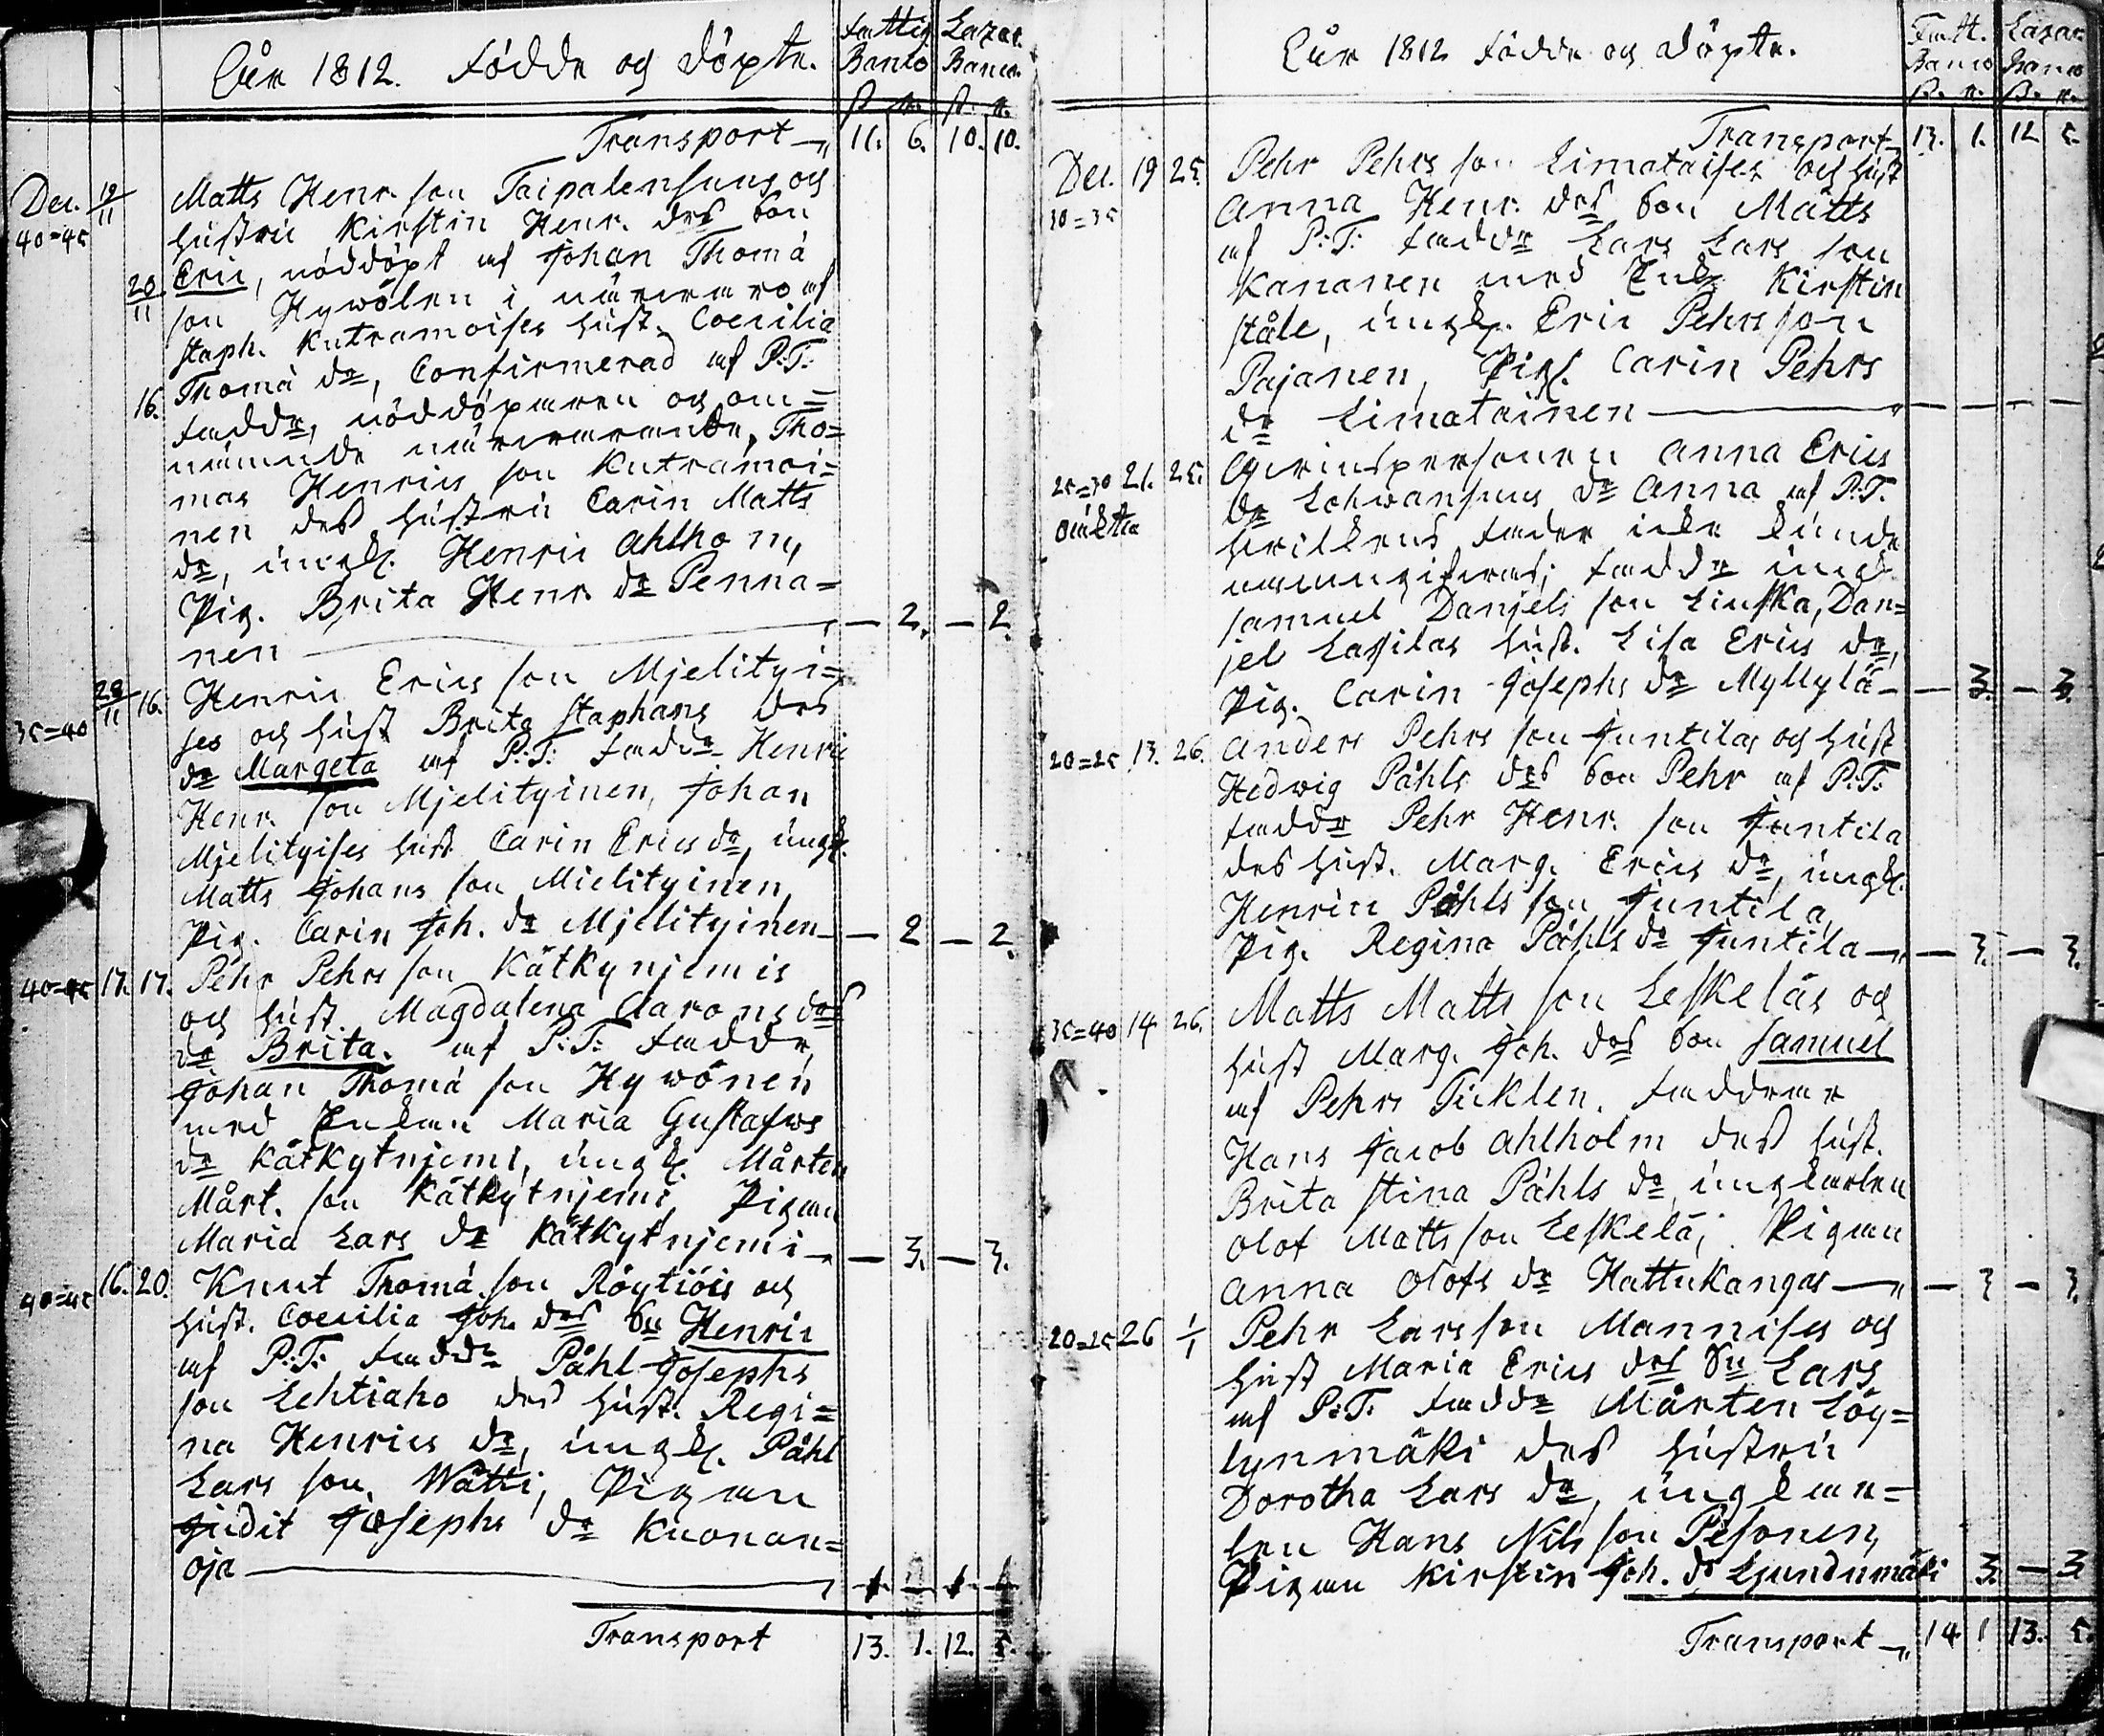 Åhr 1812. Födde og döpte.
Fattig Banco Lazar. Banco
ß. r. ß. r.
Transport 11. 6. 10. 10.
Dec. 19/11 Matts Henr. son Taipalensuus og
40=45 hustru Kirstin Henr. des son
20/11 Eric, nöddöpt af Johan Thomä
son Hywölen i närwaro af
Staph. Kutramoises hust. Coecilia
16. Thomä dr, Confirmerad af P:T:
faddr, nöddöparen og om=
nämnde närwarande, Tho=
mas Henrics son Kutramoi=
nen des hustru Carin Matts
dr, ungk. Henric Ahlhom,
Pig. Brita Henr. dr Penna=
nen — 2. — 2.
29/11 16. Henric Erics son Mjelityi=
35=40 ses och hust Brita Staphans des
dr Margeta af P:T: faddr Henric
Henr. son Mjelityinen, Johan
Mjelityises hust Carin Erics dr, ungk.
Matts Johans son Mielityinen,
Pig. Carin Joh. dr Mjelityinen — 2 — 2.
40=45 17. 17. Pehr Pehrs son Kätkynjemis
och hust. Magdalena Aarons des
dr Brita. af P:T: faddr,
Johan Thomä son Hywönen
med Enkan Maria Gustafws
dr Kätkytnjemi, ungk. Mårten
Mårt. son Kätkytnjemi, Pigan
Maria Lars dr Kätkytnjemi — 3. — 3.
40=45 16. 20. Knut Thomä son Röytiöis og
hust. Coecilia Joh. des Sn Henric
af P:T: faddr Påhl Josephs
son Lehtiaho des hust. Regi=
na Henrics dr, ungk. Påhl
Lars son Wätti, Pigan
Judit Josephs dr Kuonan=
oja 1. — 1. —
Transport 13. 1. 12. 5.
Åhr 1812 Födde og döpte.
Fatt. Banco Lazar. Banco
ß. r. ß. r.
Transport 13. 1. 12 5.
Dec. 19 25. Pehr Pehrs son Limataises och hust
30=35 Anna Henr. des son Matts
af P:T: faddr Lars Lars son
Kananen med Enk. Kirstin
Ståle, ungk. Eric Pehrs son
Pajanen, Pig. Carin Pehrs
dr Limatainen — — — —
25=30 21. 25. Qwinspersonen Anna Erics
oäkta dr Lohwansuus dr Anna af P:T.
hwilkens fader icke kunde
namngifwas; faddr ungk.
Samuel Danjels son Liuska, Dan=
jel Lassilas hust. Lisa Erics dr,
Pig. Carin Josephs dr Myllylä — 3. — 3.
20=25 13. 26. Anders Pehrs son Juntilas og hust
Hedwig Påhls des son Pehr af P:T:
faddr Pehr Henr. son Juntila
des hust. Marg. Erics dr, ungk.
Henric Påhls son Juntila,
Pig. Regina Påhls dr Juntila — 3. — 3.
35=40 14 26. Matts Matts son Leskeläs og
hust Marg. Joh. des son Samuel
af Pehr Ticklen. faddrar
Hans Jacob Ahlholm des hust.
Brita Stina Påhls dr, ungkarlen
Olof Matts son Leskelä; Pigan
Anna Olofs dr Hattukangas — 3 — 3.
20=25 26 1/1 Pehr Lars son Mannises og
hust Maria Erics des Sn Lars
af P:T. faddr Mårten Löy=
lynmäki des hustru
Dorotha Lars dr, ungkar=
len Hans Nils son Pesonen,
Pigan Kirstin Joh. dr Ljundumäki 3. — 3
Transport 14 1 13. 5.